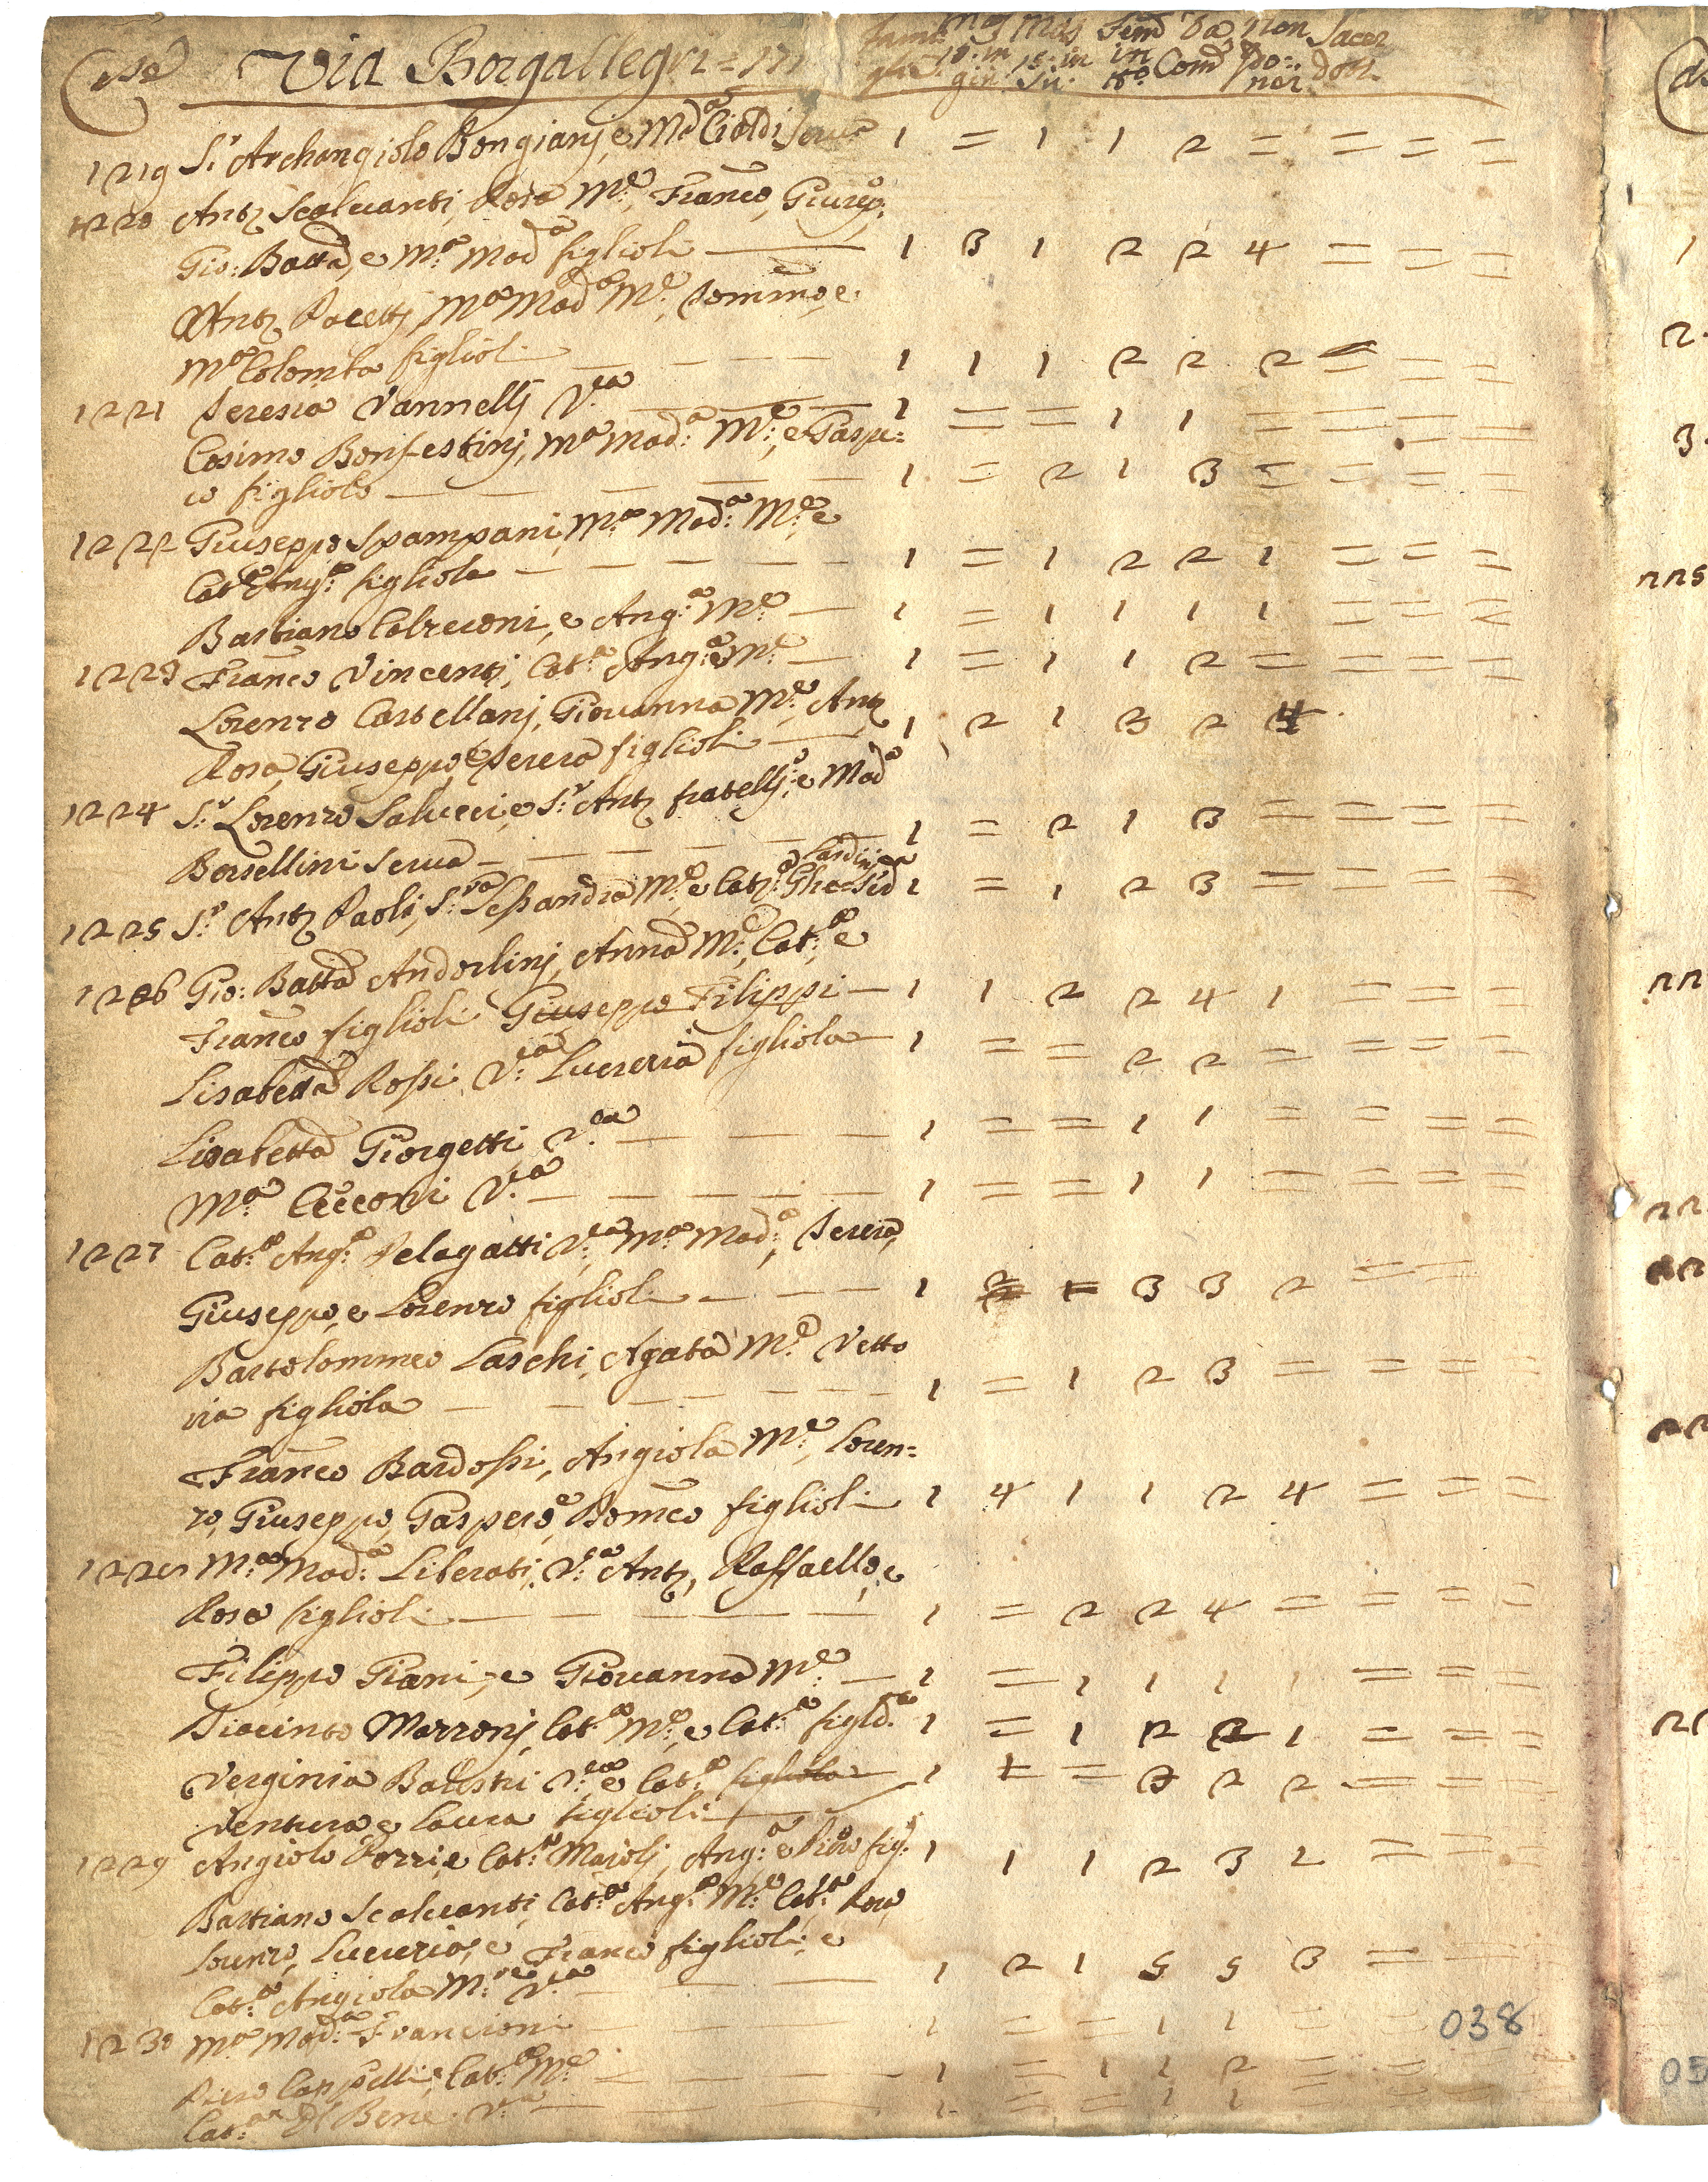 Via Borgallegri
1219 S.r Archangiolo Bongianj, e M.a Cioldi Serva 1 = 1 1 2 = = = =
1220 Ant.o Scalvanti, Rosa M.e, Franco, Giusep.
Gio: Batta, e M.a Mad.a figlioli 1 3 1 2 2 4 = = =
Ant.o Pacettj, M.a Mad.a M.e, Domm.o, e
M.a Colomba figlioli 1 1 1 2 2 2 = = =
1221 Teresia Vannellj V.ca 1 = = 1 1 = = = =
Cosimo Bonfestinj, M.a Mad.a M.e, e Gaspe=
ro figliolo 1 = 2 1 3 = = = =
1222 Giuseppe Spampani, M.a Mad.a M.e e
Cat.a Ang.a figliola 1 = 1 2 2 1 = = =
Bastiano Calzeroni, e Ang.a M.e 1 = 1 1 1 1 = = =
1223 Franco Vincentj, Cat.a Ang.a M.e 1 = 1 1 2 = = = =
Lorenzo Castellanj, Giovanna M.e, Ant.o
Rosa, Giuseppe, e Teresa figlioli 1 2 1 3 2 4
1224 S.r Lorenzo Salucci, e S.r Ant.o fratellj, e Mad.a
Borsellini Serva 1 = 2 1 3 = = = =
1225 S.r Ant.o Paoli, S.ra Lessandra M.e, e Cat.a 1 = 1 2 3 = = = =
1226 Gio: Batta Andorlinj, Anna M.e, Cat.a e
Franco figlioli Giuseppe Filippi 1 1 2 2 4 1 = = =
Lisabetta Rossi V.ca Lucrezia figliola 1 = = 2 2 = = = =
Lisabetta Giorgetti V.ca 1 = = 1 1 = = = =
M.a Cecconi V.ca 1 = = 1 1 = = = =
1227 Cat.a Ang.a Pelagatti V.ca M.a Mad.a, Teresa,
Giuseppe, e Lorenzo figlioli 1 2 1 3 3 2 = =
Bartolommeo Laschi, Agata M.e Vetto
ria figliola 1 = 1 2 3 = = = =
Franco Bardossi, Angiola M.e, Loren=
zo, Giuseppe, Gaspero, e Bomeo figlioli 1 4 1 1 2 4 = = =
1228 M.a Mad.a Liberati, V.a Ant.o, Raffaello, e
Rosa figlioli 1 = 2 2 4 = = = =
Filippo Giani, e Giovanna M.e 1 = 1 1 1 1 = = =
Diacinto Marronj, Cat.a M.e, e Cat.a figl.a 1 = 1 2 2 1 = = =
Verginia Balestri V.ca e Cat.a figliola 1 1 = 3 2 2 = = =
Ventura e Laura figlioli
1229 Angiolo Porri, e Cat.a Majolj, Ang.a e Piero fig. 1 1 1 2 3 2 = = =
Bastiano Scalvanti, Cat.a Ang.a M.e Cat.a Rosa
Lorenzo, Lucrezia, e Franco figlioli, e
Cat.a Angiola M.re V.ca 1 2 1 5 5 3 = =
1230 M.a Mad.a Francioni 1 = = 1 1 = =
Piero Cappelli, e Cat.a M.e 1 = 1 1 2 = = =
Cat.a del Bene V.a 1 = = 1 1 = = =
038